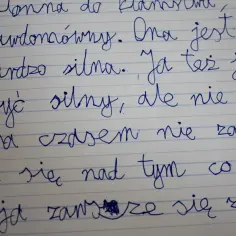 łonna do kłamstwa,
awdomówny. Ona jest
ardzo silna. Ja też j
yć silny, ale nie
a czasem nie za
się nad tym co
ja zawsze się z